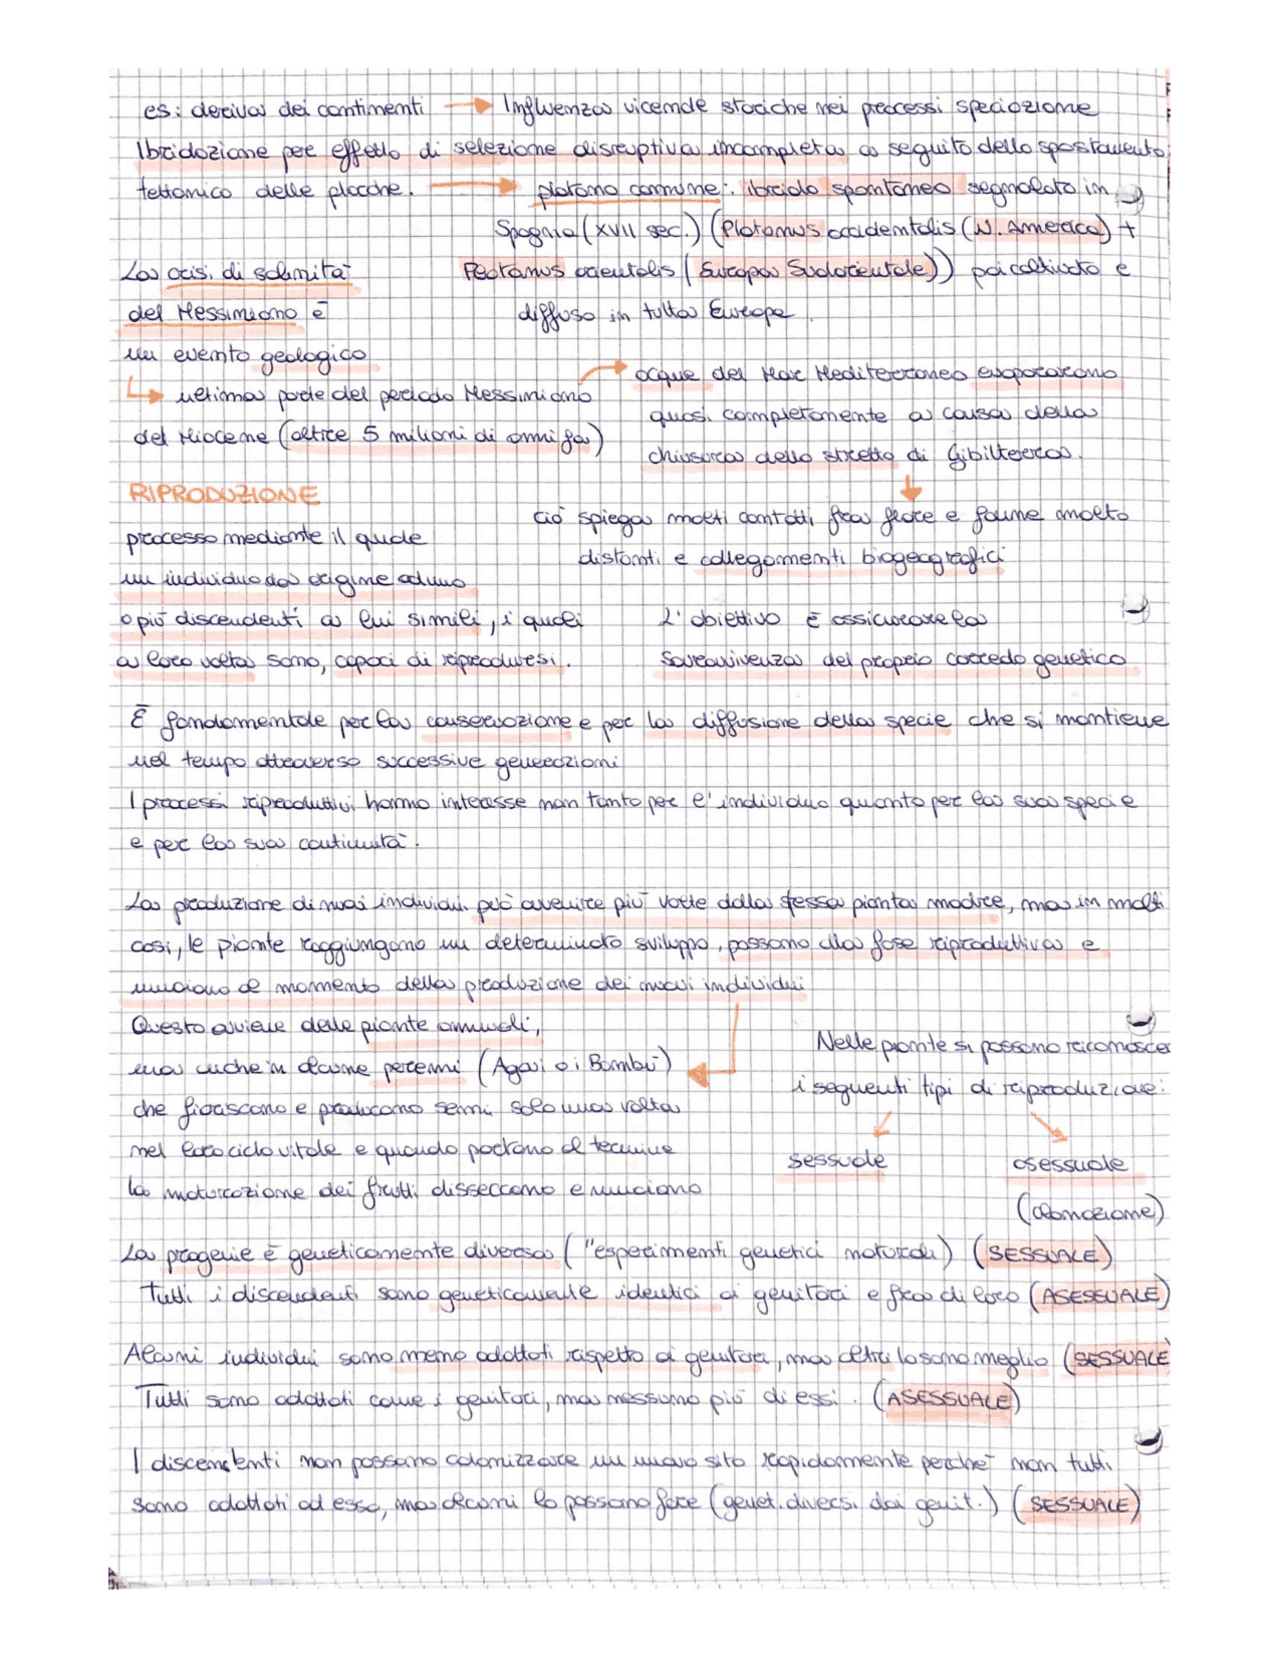 es: deriva dei continenti → Influenza vicende storiche nei processi speciazione
Ibridazione per effetto di selezione disruptiva incompleta a seguito dello spostamento
tettonico delle placche. → platano comune: ibrido spontaneo segnalato in
Spagna (XVII sec.) (Platanus occidentalis (N. America) +
Platanus orientalis (Europa Sudorientale)) poi coltivato e
diffuso in tutta Europa.
La crisi di salinità
del Messiniano è
un evento geologico
↳ ultima parte del periodo Messiniano
del Miocene (oltre 5 milioni di anni fa)
acque del Mar Mediterraneo evaporarono
quasi completamente a causa della
chiusura dello stretto di Gibilterra.
ciò spiega molti contatti fra flore e faune molto
distanti e collegamenti biogeografici
RIPRODUZIONE
processo mediante il quale
un individuo da origine ad uno
o più discendenti a lui simili, i quali
a loro volta sono, capaci di riprodursi.
L'obiettivo è assicurare la
sopravvivenza del proprio corredo genetico
È fondamentale per la conservazione e per la diffusione della specie che si mantiene
nel tempo attraverso successive generazioni
I processi riproduttivi hanno interesse non tanto per l'individuo quanto per la sua specie
e per la sua continuità.
La produzione di nuovi individui può avvenire più volte dalla stessa pianta madre, ma in molti
casi, le piante raggiungono un determinato sviluppo, passano alla fase riproduttiva e
muoiono al momento della produzione dei nuovi individui
Questo avviene delle piante annuali,
ma anche in alcune perenni (Agavi o i Bambù)
che fioriscono e producono semi solo una volta
nel loro ciclo vitale e quando portano al termine
la maturazione dei frutti disseccano e muoiono
Nelle piante si possono riconoscer
i seguenti tipi di riproduzione:
sessuale asessuale
(clonazione)
La progenie è geneticamente diversa ("esperimenti genetici naturali) (SESSUALE)
Tutti i discendenti sono geneticamente identici ai genitori e fra di loro (ASESSUALE)
Alcuni individui sono meno adattati rispetto ai genitori, ma altri lo sono meglio (SESSUALE
Tutti sono adattati come i genitori, ma nessuno più di essi. (ASESSUALE)
I discendenti non possono colonizzare un nuovo sito rapidamente perché non tutti
sono adattati ad esso, ma alcuni lo possono fare (genet. diversi dai genit.) (SESSUALE)